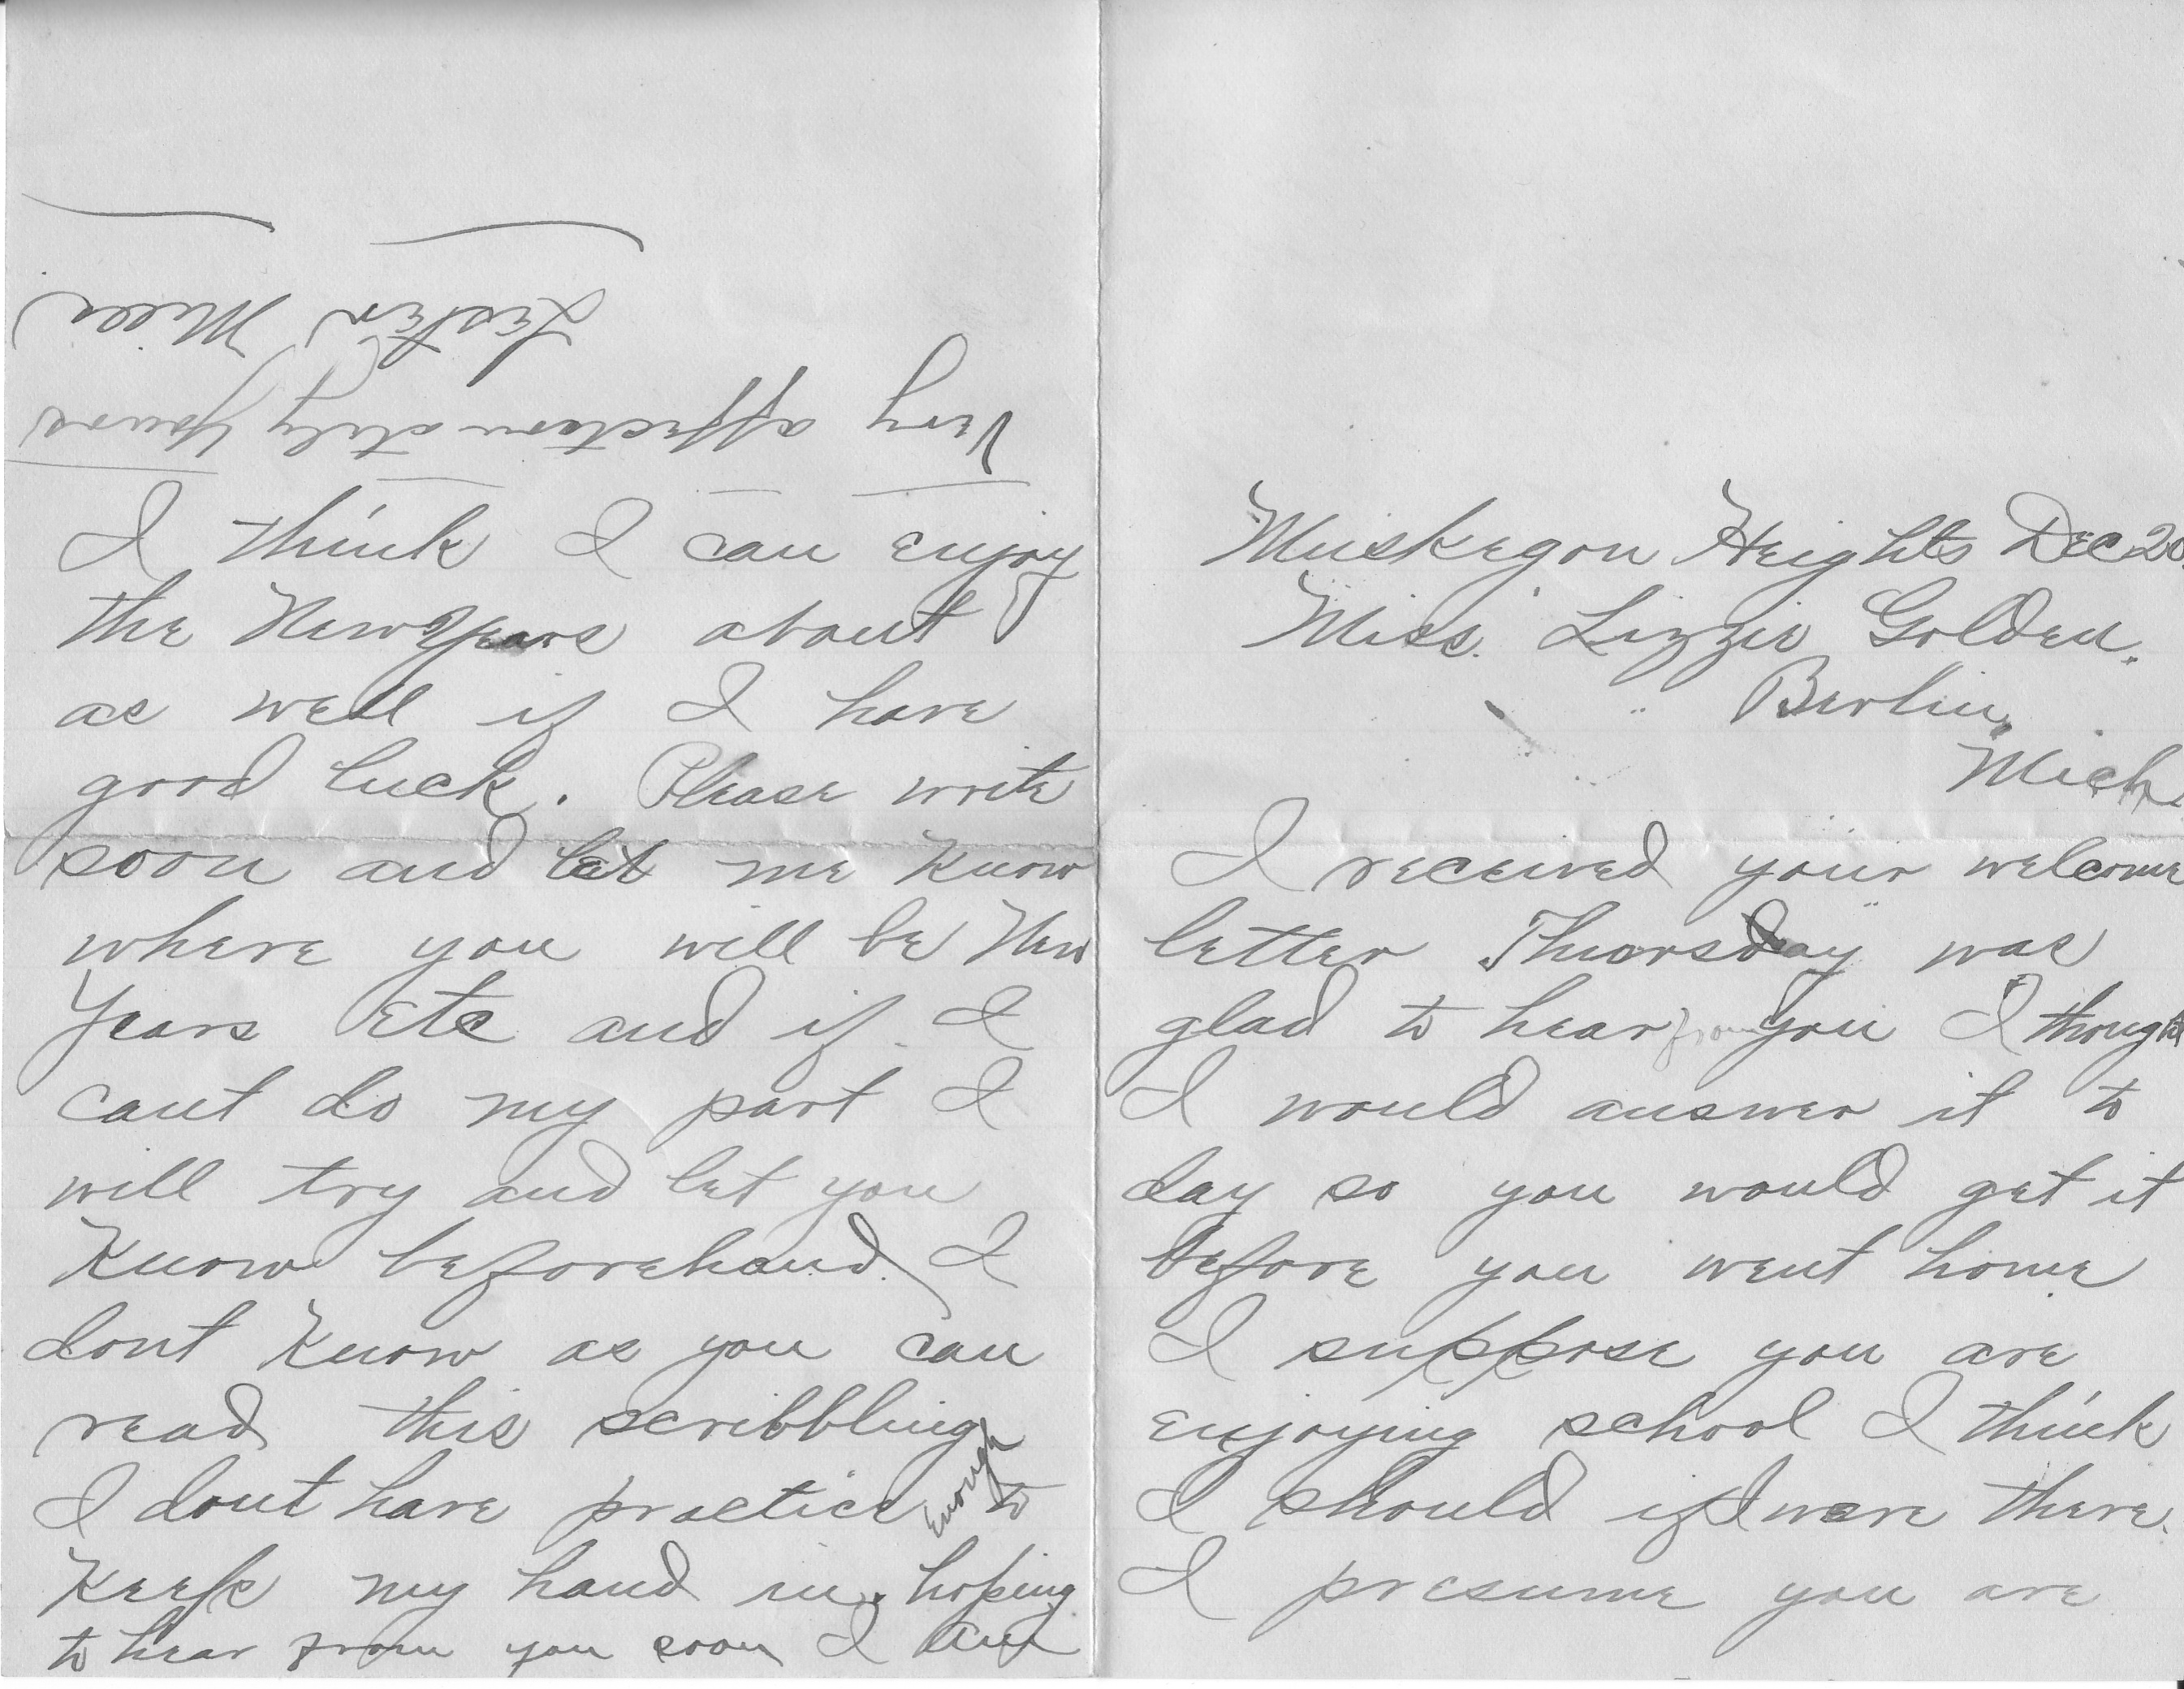 Muskegon Heights Dec 20
Miss. Lizzie Golden.
Berlin,
Mich
I received your welcome
letter Thursday was
glad to hear from you I thought
I would answer it to
day so you would get it
before you went home
I suppose you are
enjoying school I think
I should if I were there.
I presume you are
I think I can enjoy
the New Years about
as well if I have
good luck. Please write
soon and let me know
where you will be New
Years Etc and if I
cant do my part I
will try and let you
Know beforehand. I
dont Know as you can
read this scribbling
I dont have practice Enough to
Keep my hand in. hoping
to hear from you soon I am
Very affectionately Yours
Lester Mills